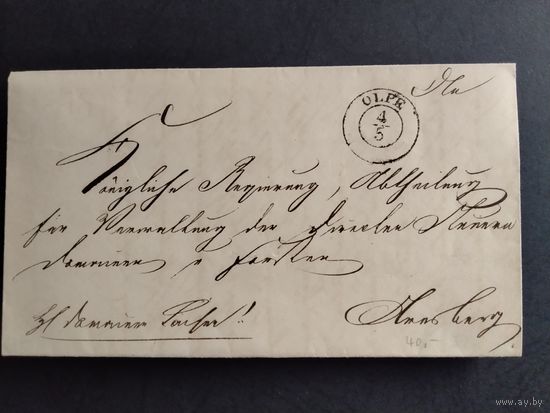 An
OLPE
4/5
Königliche Regierung, Abtheilung
für Verwaltung der directen Steuern
Domainen u Forsten
Domainen Sachen!
Arnsberg
40,-
www.ay.by